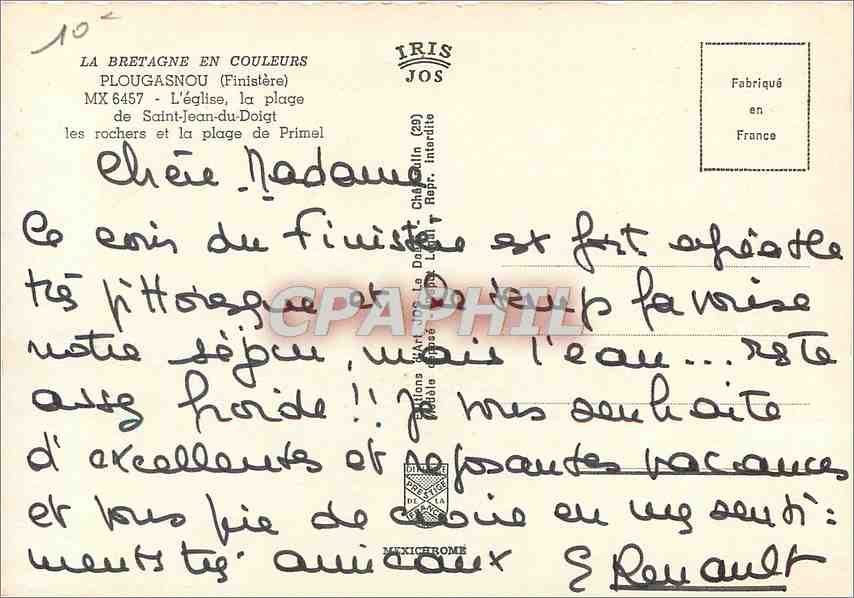 10€
LA BRETAGNE EN COULEURS
PLOUGASNOU (Finistère)
MX 6457 - L'église, la plage
de Saint-Jean-du-Doigt
les rochers et la plage de Primel
IRIS
JOS
Fabriqué
en
France
Editions d'Art JOS Le Doaré - Châteaulin (29)
Modèle déposé - Repr. interdite
Chère Madame
Ce coin du Finistère est fort agréable
très pittoresque et le temps favorise
notre séjour, mais l'eau... reste
assez froide!! Je vous souhaite
d'excellentes et reposantes vacances
et vous prie de croire en mes senti:
ments très amicaux
E Renault
CPAPHIL
DIFFUSE
PRESTIGE
DE LA
FRANCE
MEXICHROME